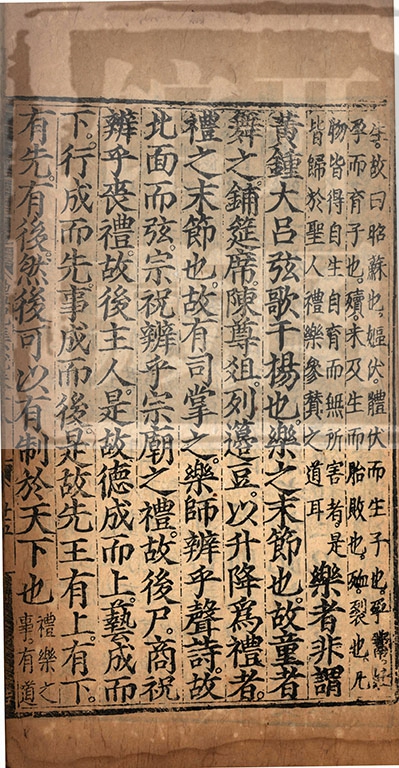 生。故曰昭蘇也。嫗伏。體伏而生子也。孕鬻
孕而育子也。殰。未及生而胎敗也。殈。裂也。凡
物皆得自生自育而無所害者。是
皆歸於聖人禮樂參贊之道耳
樂者非謂
黃鍾大呂弦歌干揚也。樂之末節也。故童者
舞之。鋪筵席。陳尊俎。列籩豆。以升降爲禮者。
禮之末節也。故有司掌之。樂師辨乎聲詩。故
北面而弦。宗祝辨乎宗廟之禮。故後尸。商祝
辨乎喪禮。故後主人。是故德成而上。藝成而
下。行成而先。事成而後。是故先王有上有下。
有先。有後。然後可以有制於天下也
禮樂之
事。有道